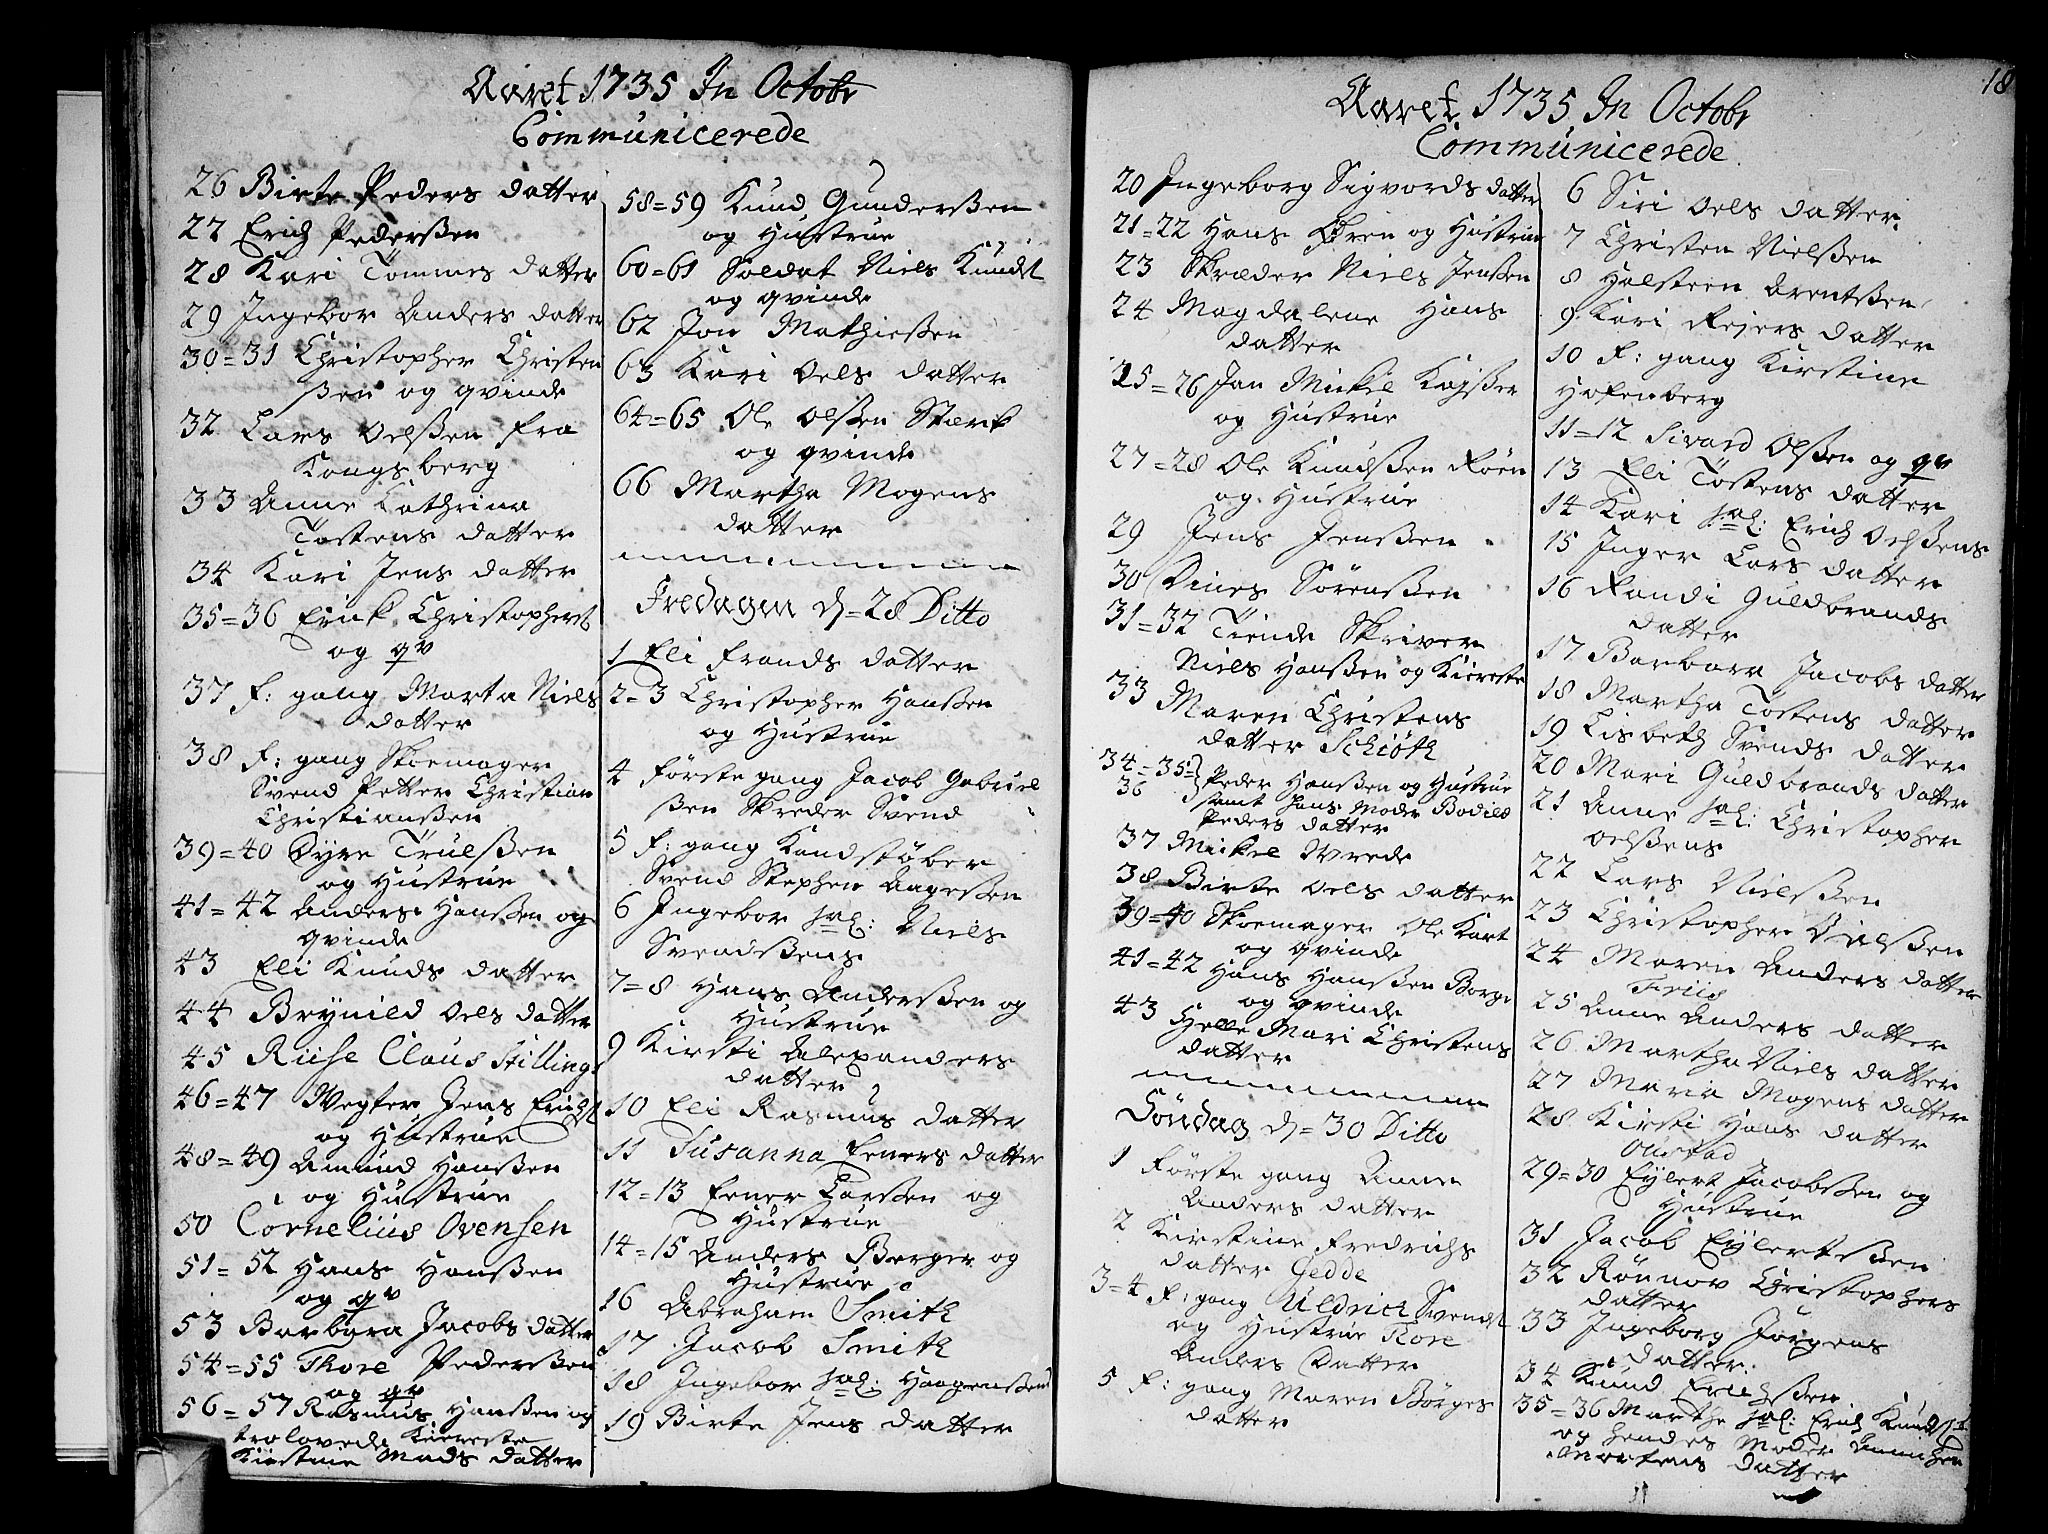 Aaret 1735 In Octobr
Communicerede
26 Birte Peders datter
27 Erich Pederßen
28 Kari Tommes datter
29 Ingebor Anders datter
30=31 Christopher Christen
ßen og qvinde
32 Lars Oelßen fra
Kongsberg
33 Anne Cathrina
Tostens datter
34 Kari Jens datter
35=36 Erick Christophers
og qv
37 f: gang Marta Niels
datter
38 f: gang Skoemager
Svend Petter Christian
Christianßen
39=40 Dyre Truelßen
og Hustrue
41=42 Anders Hanßen og
qvinde
43 Eli Knuds datter
44 Brynild Oels datter
45 Riise Claus Stillings
46=47 Vegter Jens Erichs
og Hustrue
48=49 Amund Hanßen
og Hustrue
50 Cornelius Ovensen
51=52 Hans Hanßen
og qv
53 Barbara Jacobs datter
54=55 Thore Pederßen
og qv
56=57 Rasmus Hanßen og
trolovede Kiereste
Kirstine Mads datter
58=59 Knud Gunderßen
og Hustrue
60=61 Soldat Niels Knuds
og qvinde
62 Jon Mathießen
63 Kari Oels datter
64=65 Ole Olßen Stærk
og qvinde
66 Martha Mogens
datter
Fredagen d=28 Ditto
1 Eli Frands datter
2=3 Christopher Hanßen
og Hustrue
4 förste gang Jacob Gabriel
ßen Skreder Svend
5 f: gang Kandstöber
Svend Stephen Aageßen
6 Ingebor sal: Niels
Svendßens
7=8 Hans Anderßen og
Hustrue
9 Kirsti Alexanders
datter
10 Eli Rasmus datter
11 Susanna Eeners datter
12=13 Eener Larßen og
Hustrue
14=15 Anders Berger og
Hustrue
16 Abraham Smith
17 Jacob Smith
18 Ingebor sal: Haagenßens
19 Birte Jens datter
18
Aaret 1735 In Octobr
Communicerede
20 Ingeborg Sigvords datter
21=22 Hans Ören og Hustrue
23 Skræder Niels Jenßen
24 Magdalene Hans
datter
25=26 Jan Mickel Kajßer
og Hustrue
27=28 Ole Knudßen Röen
og Hustrue
29 Jens Jenßen
30 Dines Sörenßen
31=32 Tiende Skriver
Niels Hanßen og Kiereste
33 Maren Christens
datter Schiøth
34=35= Peder Hanßen og Hustrue
36 samt hans Moder Bodild
Peders datter
37 Mickel Wrede
38 Birte Oels datter
39=40 Skoemager Ole Kart
og qvinde
41=42 Hans Hanßen Borge
og qvinde
43 Helle Mari Christens
datter
Söndag d=30 Ditto
1 Förste gang Anne
Anders datter
2 Kirstine Fredrichs
datter Gedde
3=4 f: gang Uldrich Svends
og Hustrue Tore
Anders Datter
5 f: gang Maren Börges
datter
6 Siri Oels datter
7 Christen Nielßen
8 Halsteen Arentßen
9 Kari Rejers datter
10 f: gang Kirstine
Hofenberg
11=12 Sivard Olßen og qv
13 Eli Töstens datter
14 Kari sal: Erich Oelßens
15 Inger Lars datter
16 Randi Guldbrands
datter
17 Barbara Jacobs datter
18 Martha Tostens datter
19 Lisbeth Svends datter
20 Mari Guldbrands datter
21 Anne sal: Christopher
Oelßens
22 Lars Nielßen
23 Christopher Oelßen
24 Maren Anders datter
Friis
25 Anne Anders datter
26 Martha Niels datter
27 Maria Mogens datter
28 Kirsti Hans datter
Oustad
29=30 Eylert Jacobßen og
Hustrue
31 Jacob Eylertßen
32 Rönnov Christophers
datter
33 Ingeborg Jörgens
datter
34 Knud Erichßen
35=36 Marthe sal: Erich Knuds
og hendes Moder
Mortens Datter